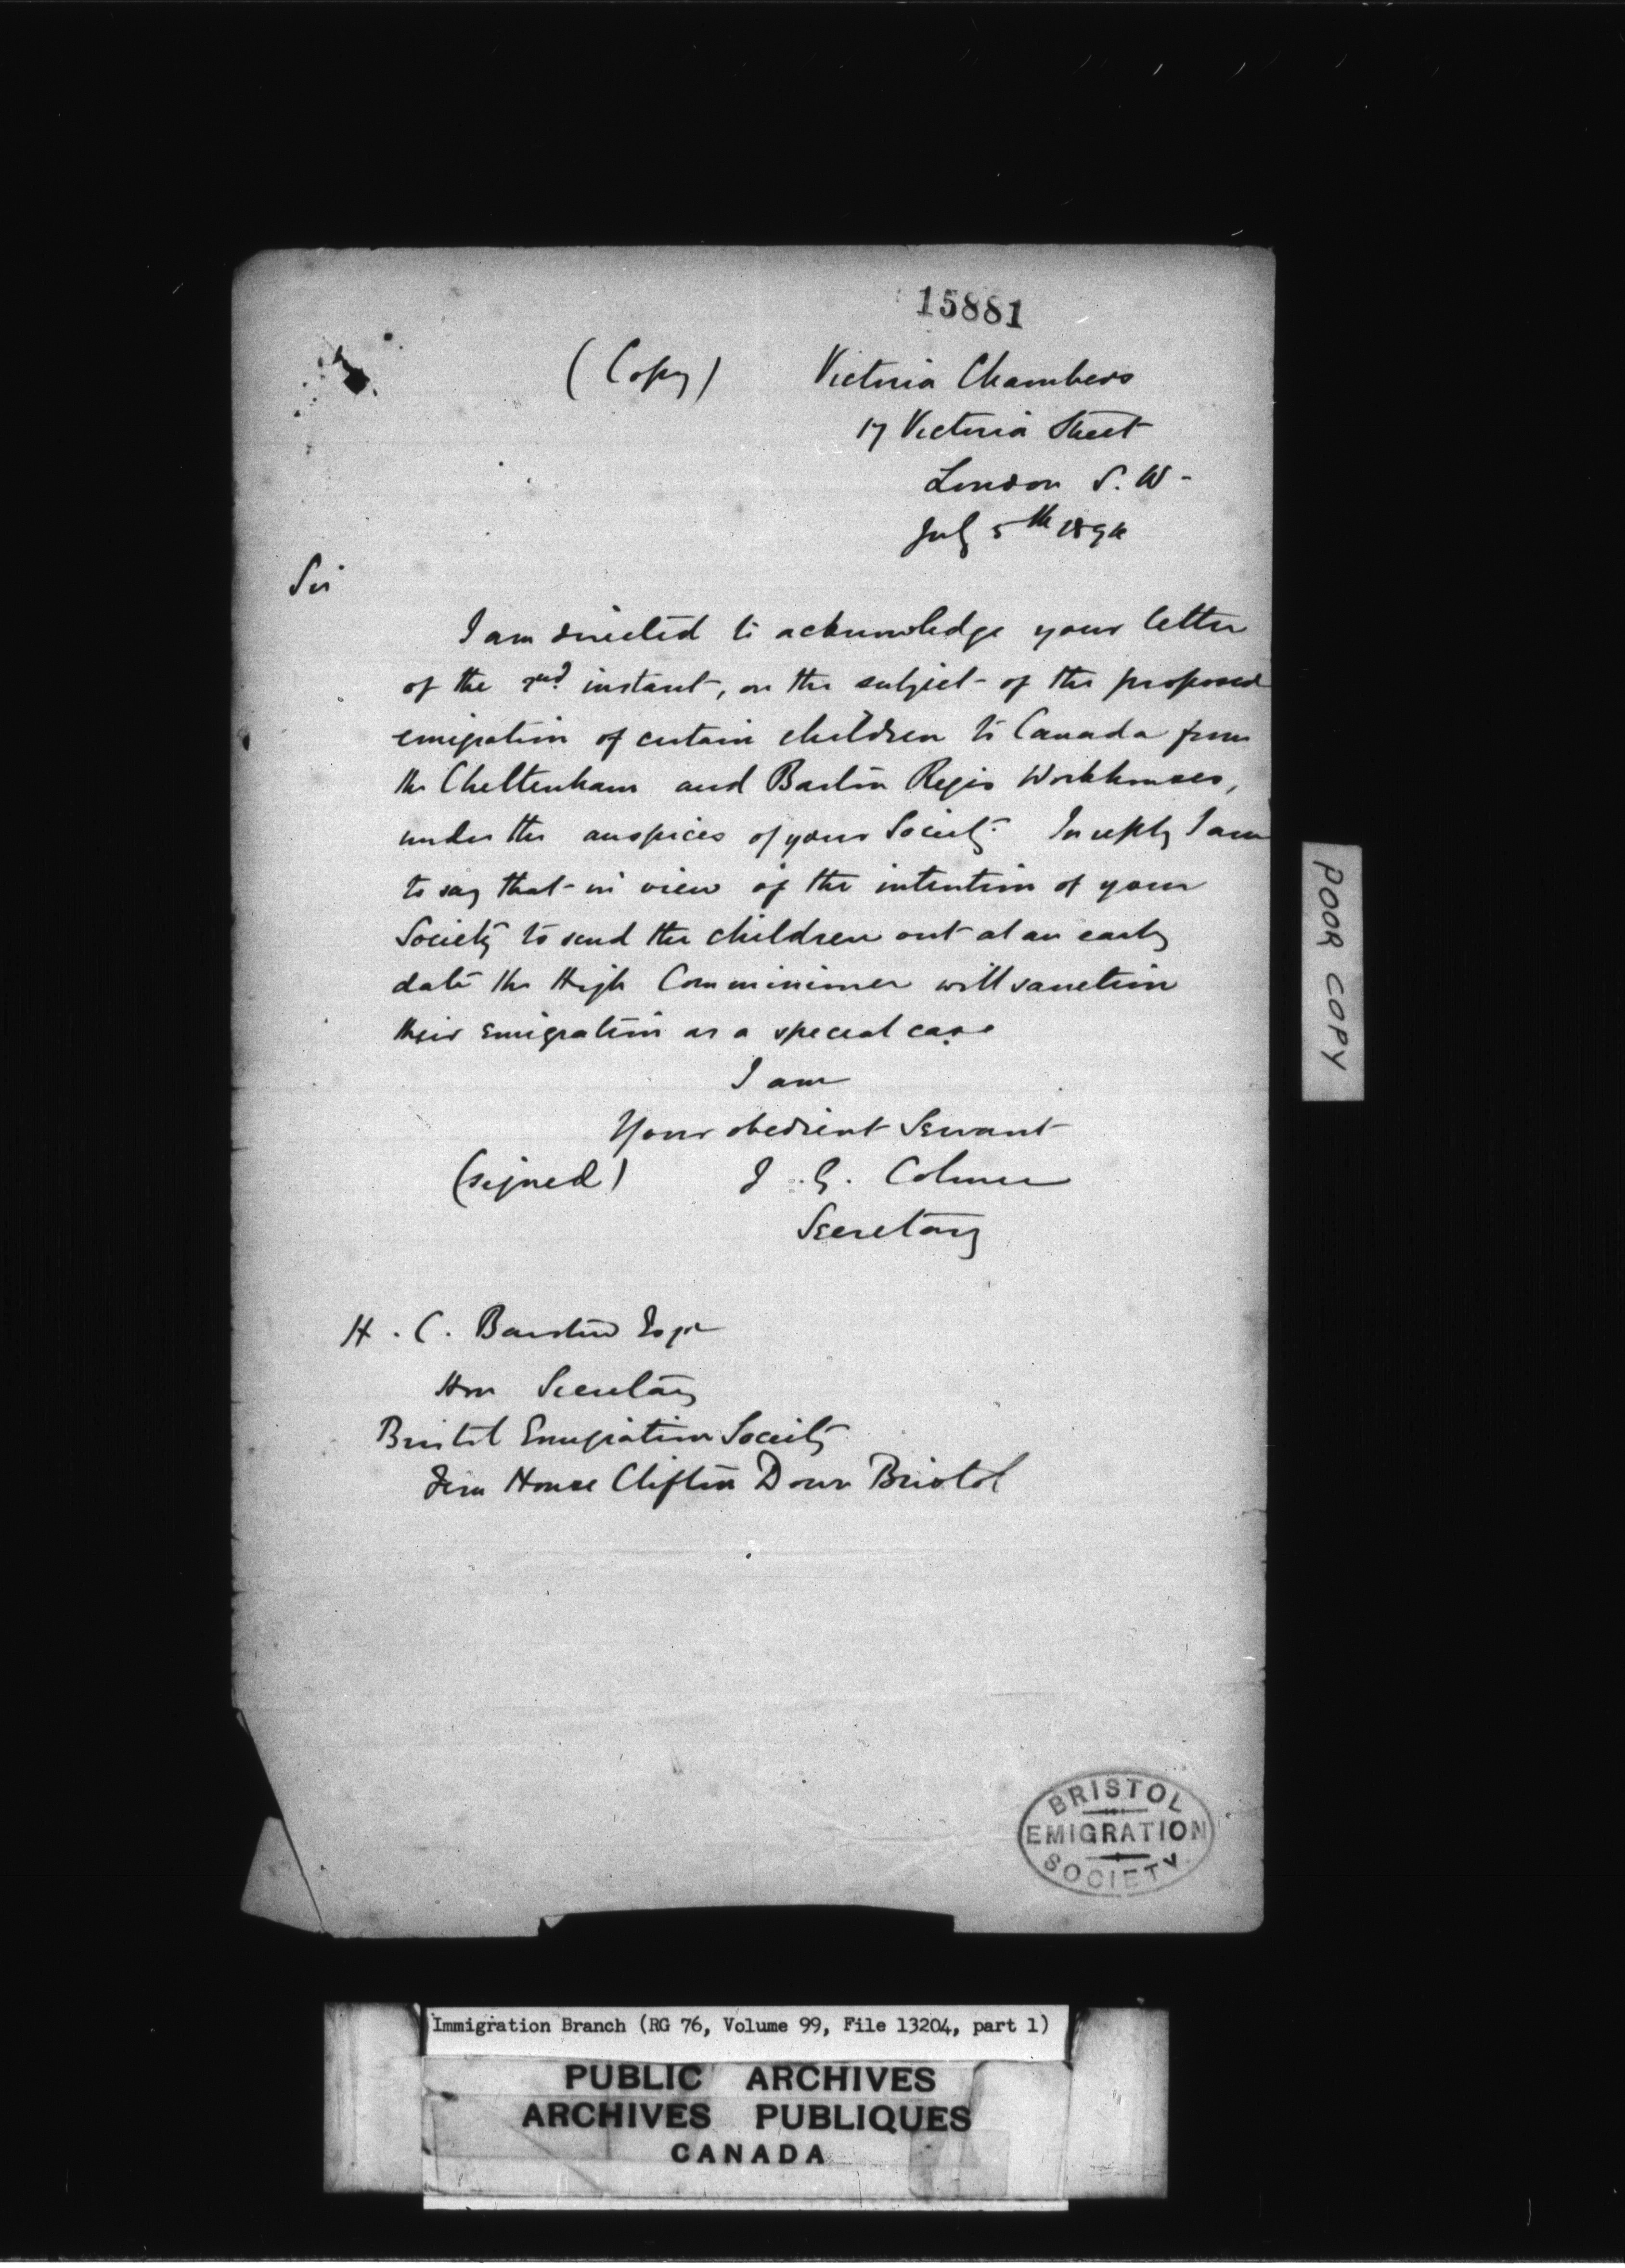 15881
(Copy)
Victoria Chambers
17 Victoria Street
London S. W -
July 5th 1894
Sir
I am directed to acknowledge your letter
of the 2nd instant, on the subject of the proposed
emigration of certain children to Canada from
the Cheltenham and Barton Regis Workhouses,
under the auspices of your Society. In reply I am
to say that in view of the intention of your
Society to send the children out at an early
date the High Commissioner will sanction
their emigration as a special case
I am
Your obedient Servant
(signed) J. G. Colmer
Secretary
H. C. Barstow Esqre
Hon Secretary
Bristol Emigration Society
Fern House Clifton Down Bristol
BRISTOL
EMIGRATION
SOCIETY
POOR COPY
Immigration Branch (RG 76, Volume 99, File 13204, part 1)
PUBLIC ARCHIVES
ARCHIVES PUBLIQUES
CANADA